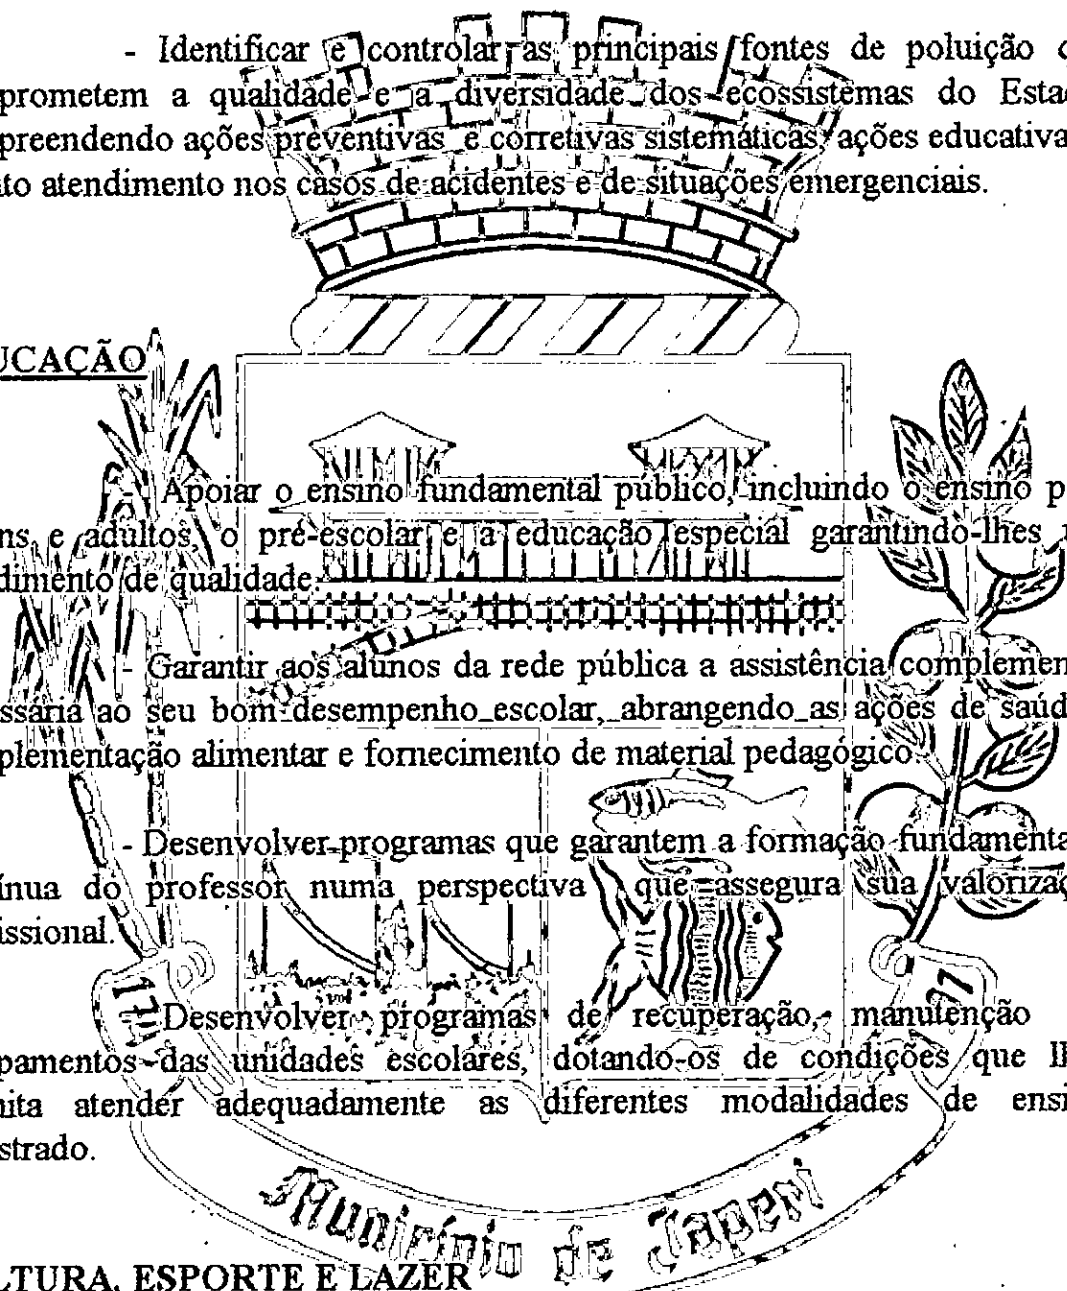 - Identificar e controlar as principais fontes de poluição
prometem a qualidade e a diversidade dos ecossistemas do Esta
preendendo ações preventivas e corretivas sistemáticas, ações educativa
to atendimento nos casos de acidentes e de situações emergenciais.
UCAÇÃO
- Apoiar o ensino fundamental público, incluindo o ensino p
ns e adultos, o pré-escolar e a educação especial garantindo-lhes
dimento de qualidade.
- Garantir aos alunos da rede pública a assistência complemen
ssária ao seu bom desempenho escolar, abrangendo as ações de saúd
plementação alimentar e fornecimento de material pedagógico.
- Desenvolver programas que garantem a formação fundamenta
ínua do professor numa perspectiva que assegura sua valorizaç
issional.
Desenvolver programas de recuperação, manutenção
pamentos das unidades escolares, dotando-os de condições que lh
ita atender adequadamente as diferentes modalidades de ensi
strado.
Município de Japeri
LTURA, ESPORTE E LAZER